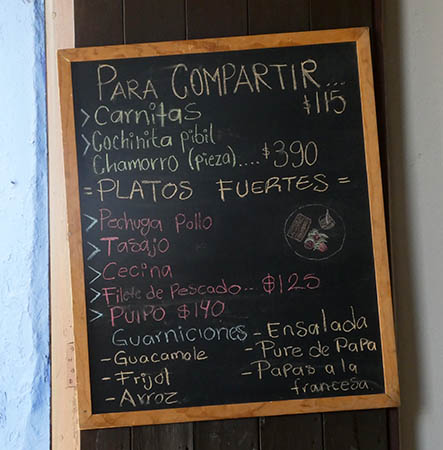 PARA COMPARTIR...
>Carnitas $115
>Cochinita pibil
Chamorro (pieza)....$390
=PLATOS FUERTES=
>Pechuga Pollo
>Tasajo
>Cecina
>Filete de Pescado... $125
>PULPO $140
Guarniciones
-Guacamole
-Frijol
-Arroz
-Ensalada
-Pure de Papa
-Papas a la
francesa